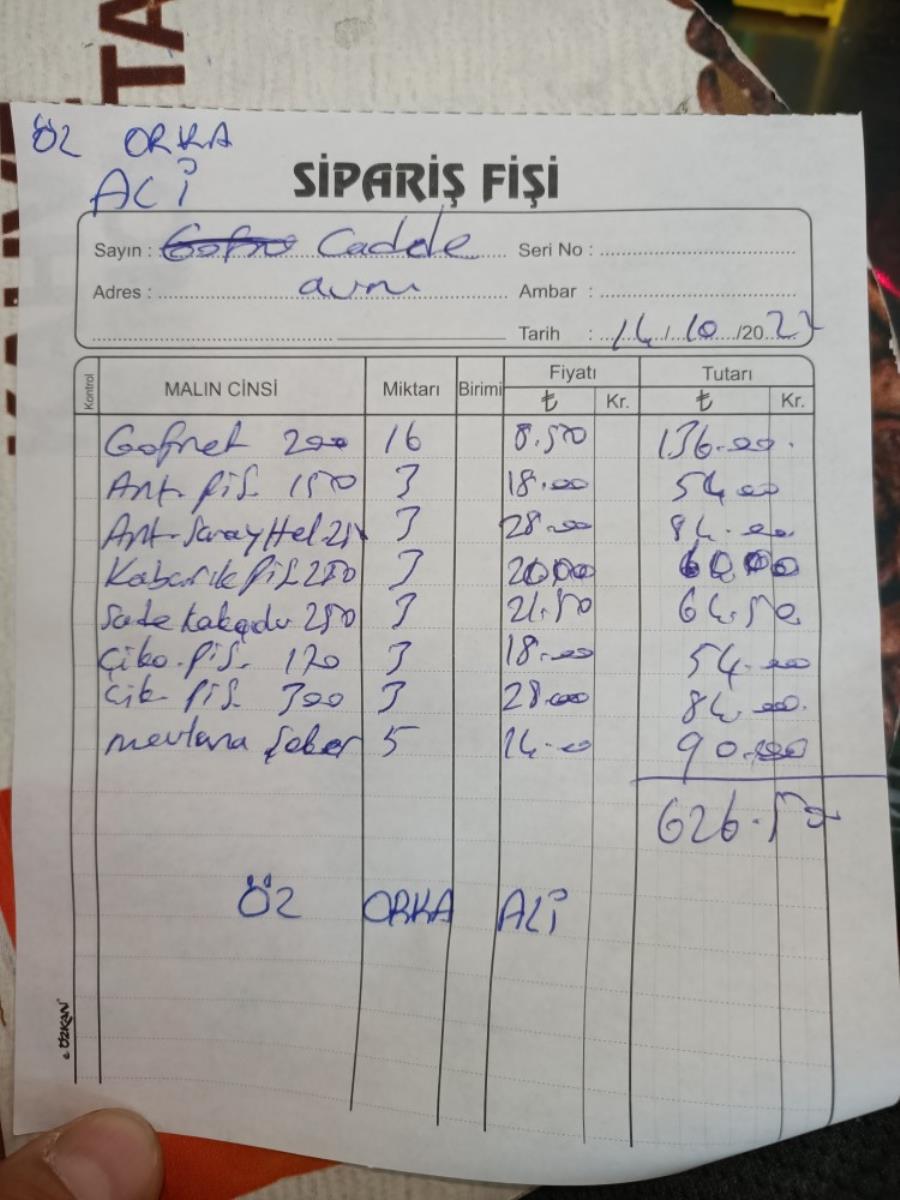 ÖZ ORKA
ALİ
SİPARİŞ FİŞİ
Sayın : Cadde
Seri No :
Adres : avm
Ambar :
Tarih : 14/10/2022
Kontrol MALIN CİNSİ Miktarı Birimi Fiyatı Tutarı
₺ Kr. ₺ Kr.
Gofret 200 16 8.50 136.00
Ant. fıs. 150 3 18.00 54.00
Ant. Saray Hel. 3 28.00 84.00
Kabarık fıs. 250 3 20.00 60.00
Sade kakaolu 250 3 21.50 64.50
fıs. 120 3 18.00 54.00
fıs. 300 3 28.00 84.00
mevlana şeker 5 90.00
626.50
ÖZ ORKA ALİ
ÖZKAN